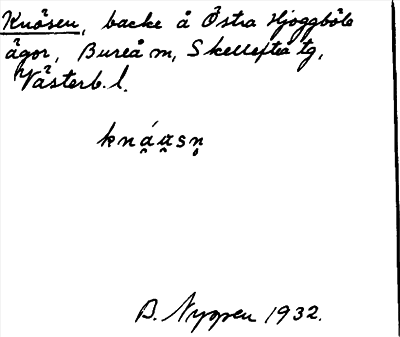 Knösen, backe å Östra Hjoggböle
ägor, Bureå m, Skellefteå tg,
Västerb. l.
kná̯a̯sn̥
B. Nygren 1932.